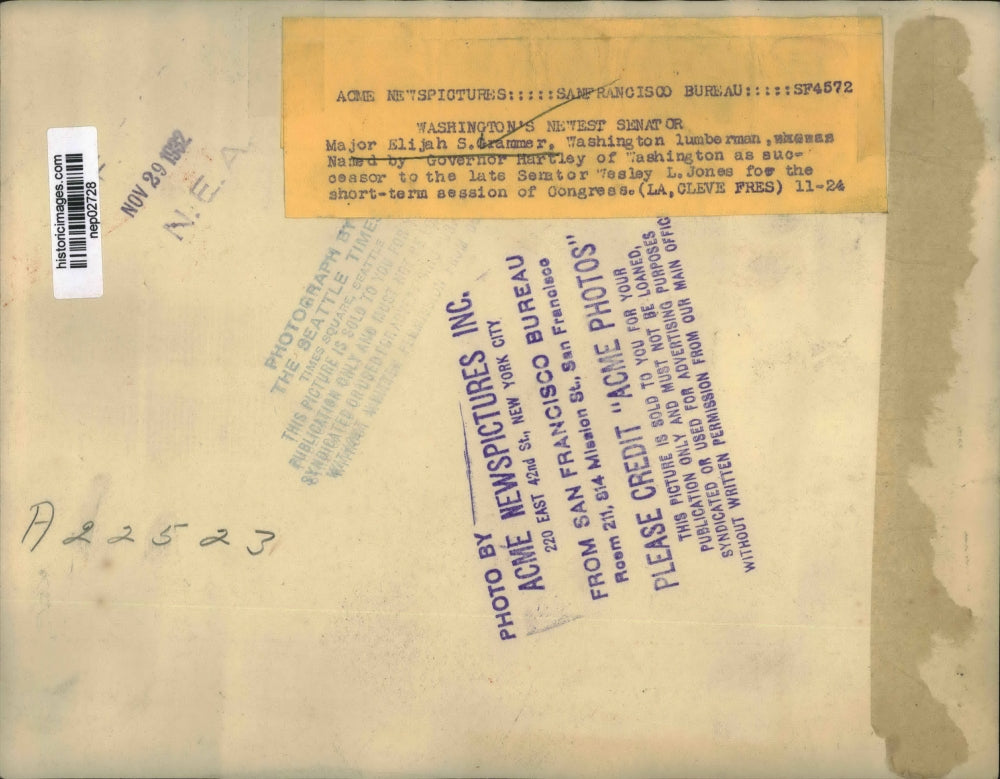 ACME NEWSPICTURES:::::SANFRANCISCO BUREAU:::::SF4572
WASHINGTON'S NEWEST SENATOR
Major Elijah S.Grammer, Washington lumberman,
Named by Governor Hartley of Washington as suc-
cessor to the late Senator Wesley L.Jones for the
short-term session of Congress.(LA,CLEVE FRES) 11-24
historicimages.com
nep02728
NOV 29 1932
N.E.A.
PHOTOGRAPH BY
THE SEATTLE TIMES
TIMES SQUARE, SEATTLE
THIS PICTURE IS SOLD TO YOU
PUBLICATION ONLY AND MUST
SYNDICATED OR LOANED
WITHOUT
PHOTO BY
ACME NEWSPICTURES INC.
220 EAST 42nd St., NEW YORK CITY
FROM SAN FRANCISCO BUREAU
Room 211, 814 Mission St., San Francisco
PLEASE CREDIT "ACME PHOTOS"
THIS PICTURE IS SOLD TO YOU FOR YOUR
PUBLICATION ONLY AND MUST NOT BE LOANED,
SYNDICATED OR USED FOR ADVERTISING PURPOSES
WITHOUT WRITTEN PERMISSION FROM OUR MAIN OFFIC
A22523